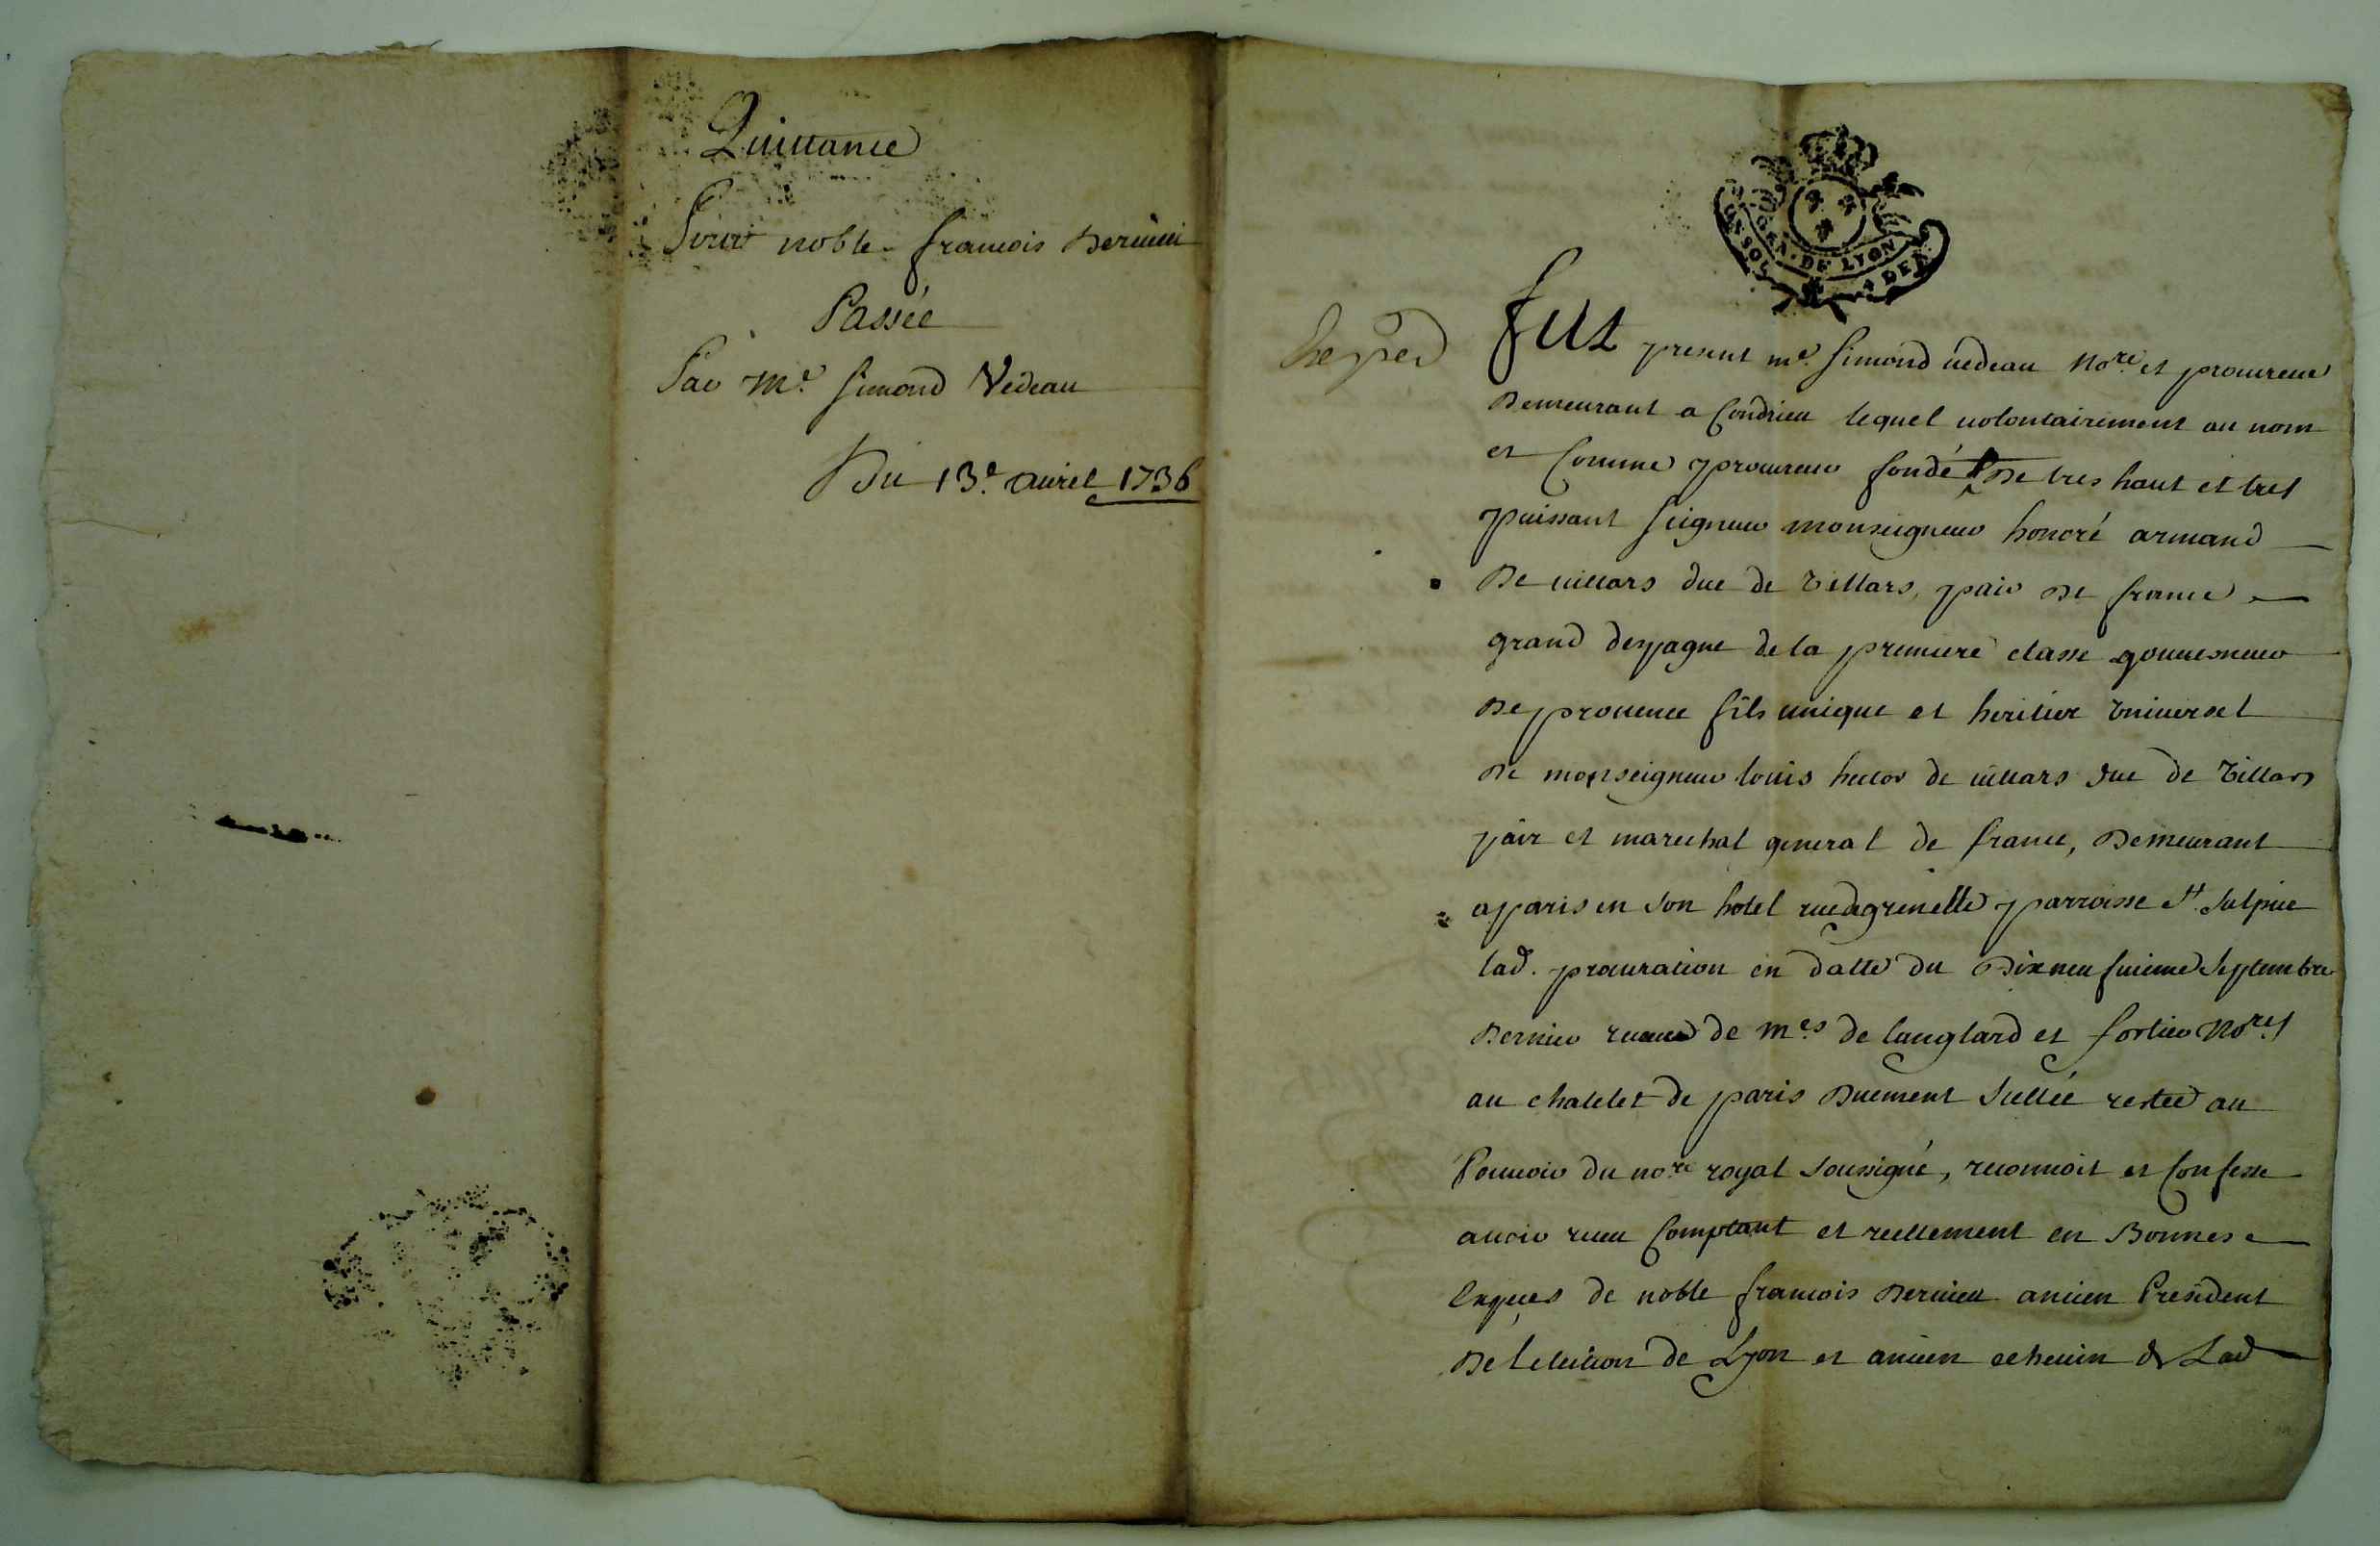 Quittance
Pour noble francois Dervieu
Passée
Par Me. Simond Vedeau
Du 13e. auril 1736
GEN. DE LYON
UN SOL 4 DEN.
fut present me. Simond uedeau Nore. et procureur
Demeurant a Condrieu lequel uolontairement au nom
et Comme procureur fondé De tres haut et tres
puissant seigneur monseigneur honoré armand
De uillars duc de Villars, pair De france
grand despagne de la premiere classe gouuerneur
De prouence fils unique et heritier Vniuersel
De monseigneur louis hector de uillars duc de Villars
pair et marechal general de france, Demeurant
a paris en son hotel rue de grenelle parroisse St. Sulpice
lad. procuration en datte du Dixneufuieme Septembre
Dernier receue de Mes. de langlard et fortier Nores
au chatelet de paris Duement Scellée restée au
Pouuoir du nore royal soussigné, reconnoit et Confesse
auoir receu Comptant et reellement en Bonnes
Especes de noble francois Dervieu ancien President
De lelection de Lyon et ancien echeuin de Lad